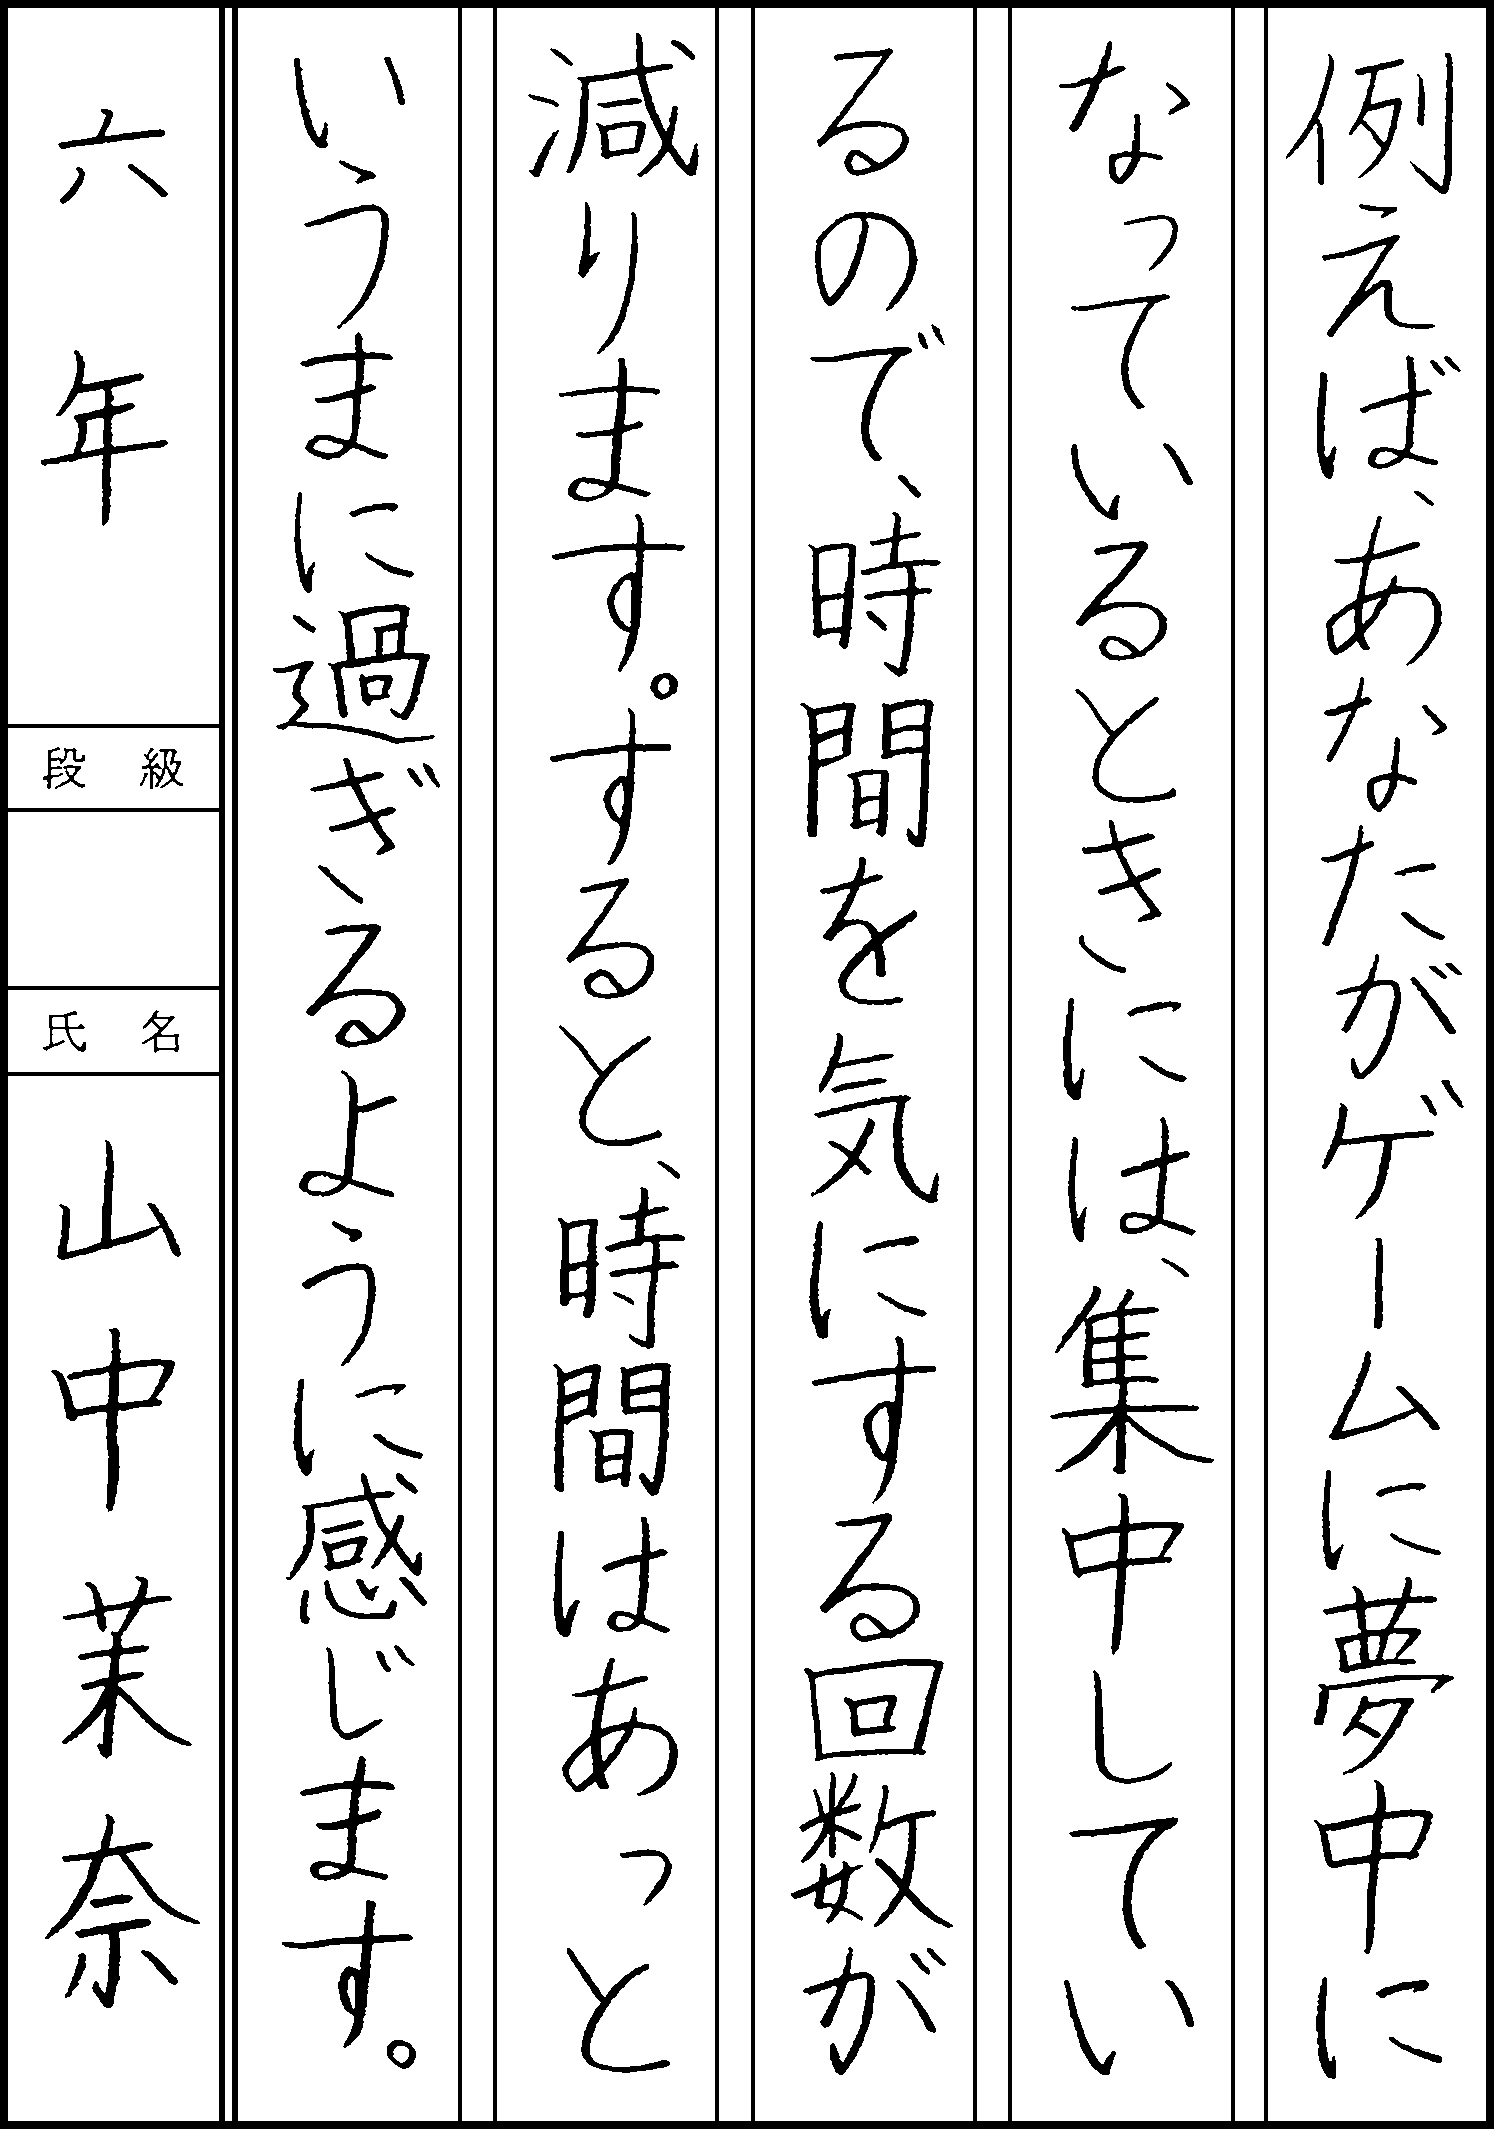 例えば、あなたがゲームに夢中に
なっているときには、集中してい
るので、時間を気にする回数が
減ります。すると、時間はあっと
いうまに過ぎるように感じます。
六年
段級
氏名
山中茉奈